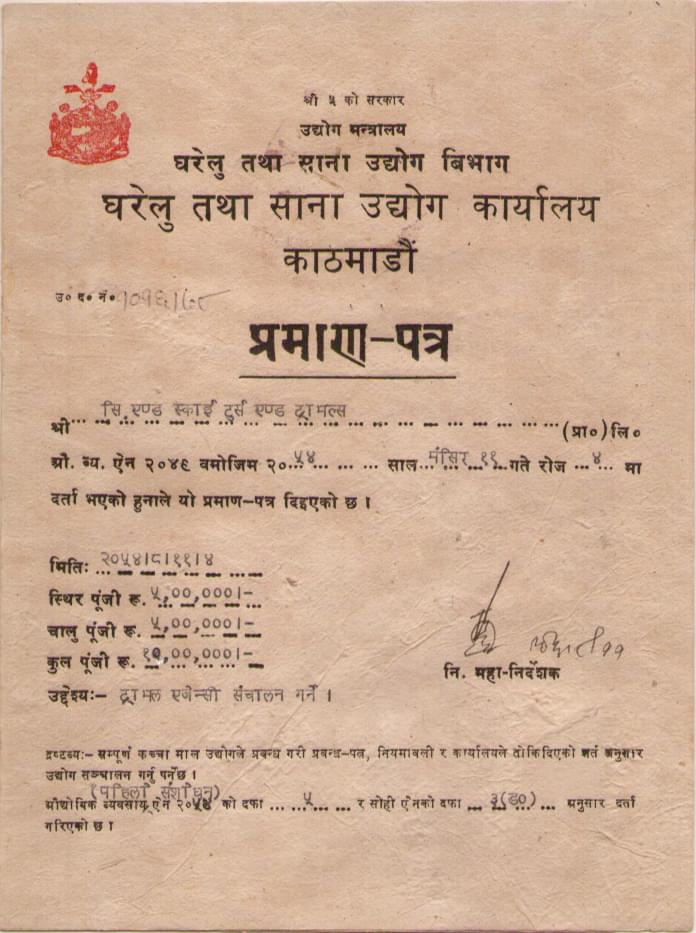 श्री ५ को सरकार
उद्योग मन्त्रालय
घरेलु तथा साना उद्योग बिभाग
घरेलु तथा साना उद्योग कार्यालय
काठमाडौं
उ० द० नं०
प्रमाण-पत्र
श्री सि.एण्ड स्काई टुर्स एण्ड ट्राभल्स (प्रा०) लि०
औ. ब्य. ऐन २०४९ वमोजिम २० ५४ साल मंसिर ११ गते रोज ४ मा
दर्ता भएको हुनाले यो प्रमाण-पत्र दिइएको छ ।
मितिः २०५४।८।११।४
स्थिर पूंजी रू. ५,००,०००।-
चालु पूंजी रू. ५,००,०००।-
कुल पूंजी रू. १०,००,०००।-
उद्देश्यः- ट्राभल एजेन्सी संचालन गर्ने ।
नि. महा-निर्देशक
द्रष्टव्यः- सम्पूर्ण कच्चा माल उद्योगले प्रबन्ध गरी प्रबन्ध-पत्र, नियमावली र कार्यालयले तोकिदिएको शर्त अनुसार
उद्योग सञ्चालन गर्नु पर्नेछ ।
(पहिलो संशोधन)
औद्योगिक व्यवसाय ऐन को दफा ५ र सोही ऐनको दफा ३(ङ०) अनुसार दर्ता
गरिएको छ ।